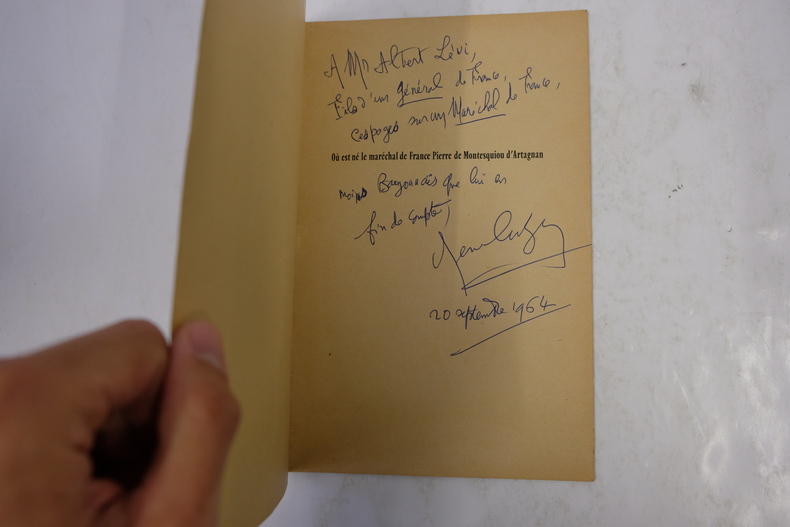 A Mr Albert Lévi,
Fils d'un général de France,
ces pages sur un Maréchal de France,
Où est né le maréchal de France Pierre de Montesquiou d'Artagnan
moins que lui en
fin de compte,
20 septembre 1964